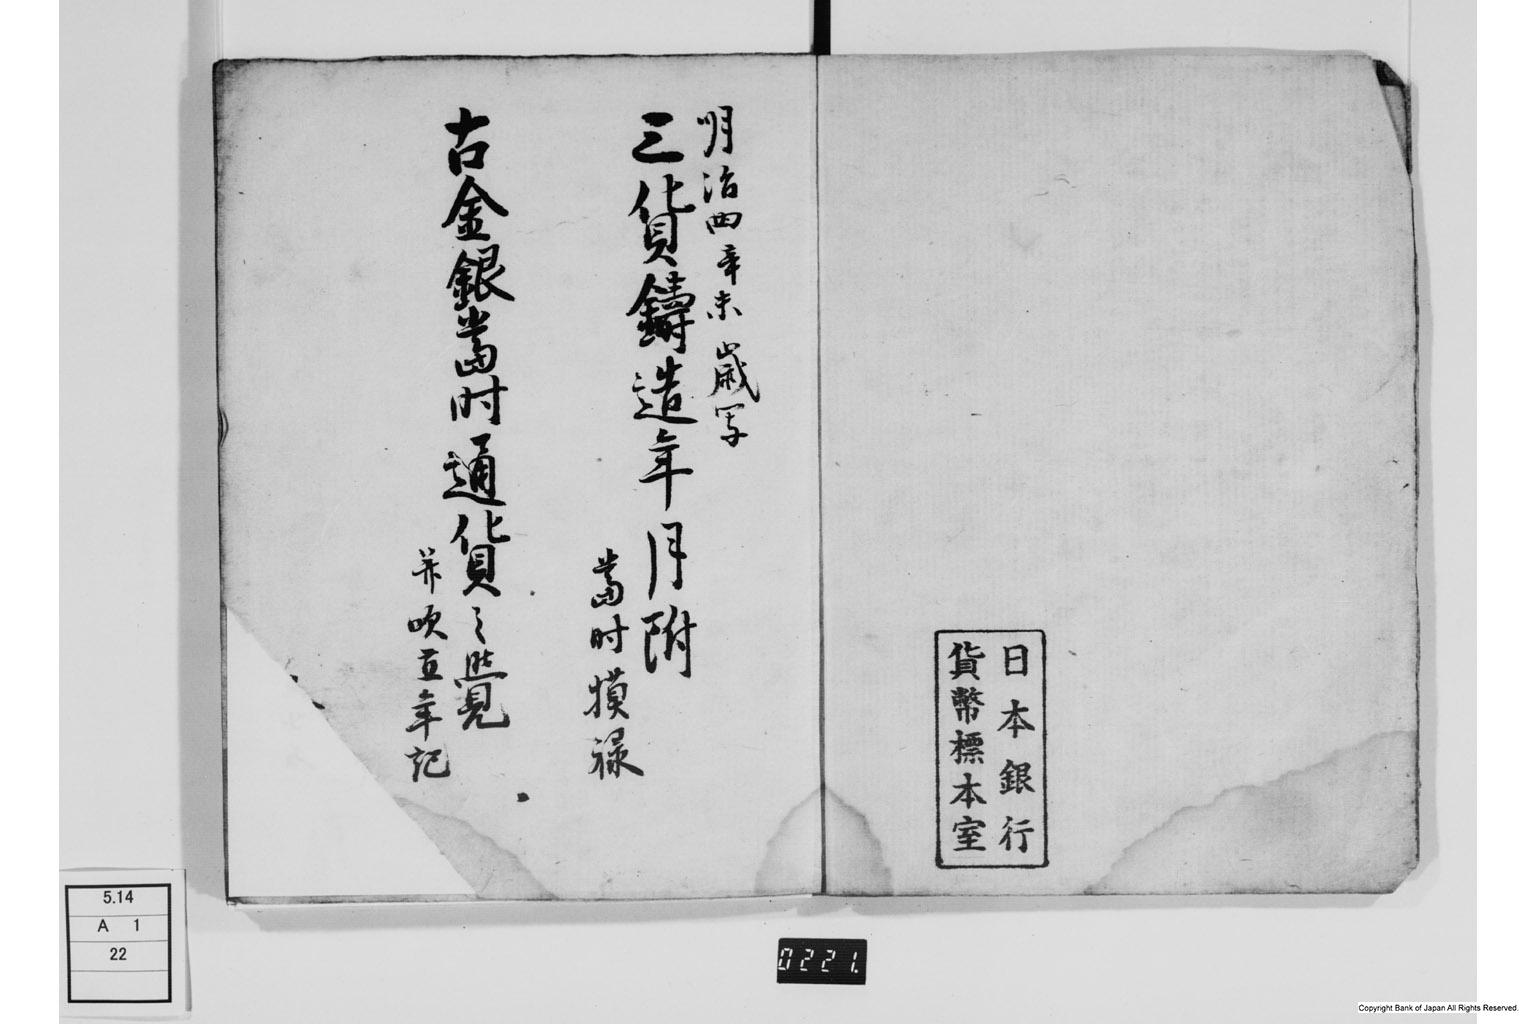 日本銀行
貨幣標本室
明治四辛未歳写
三貨鑄造年月附
當时摸禄
古金銀當时通貨之覺
并吹立年記
5.14
A 1
22
0221.
Copyright Bank of Japan All Rights Reserved.